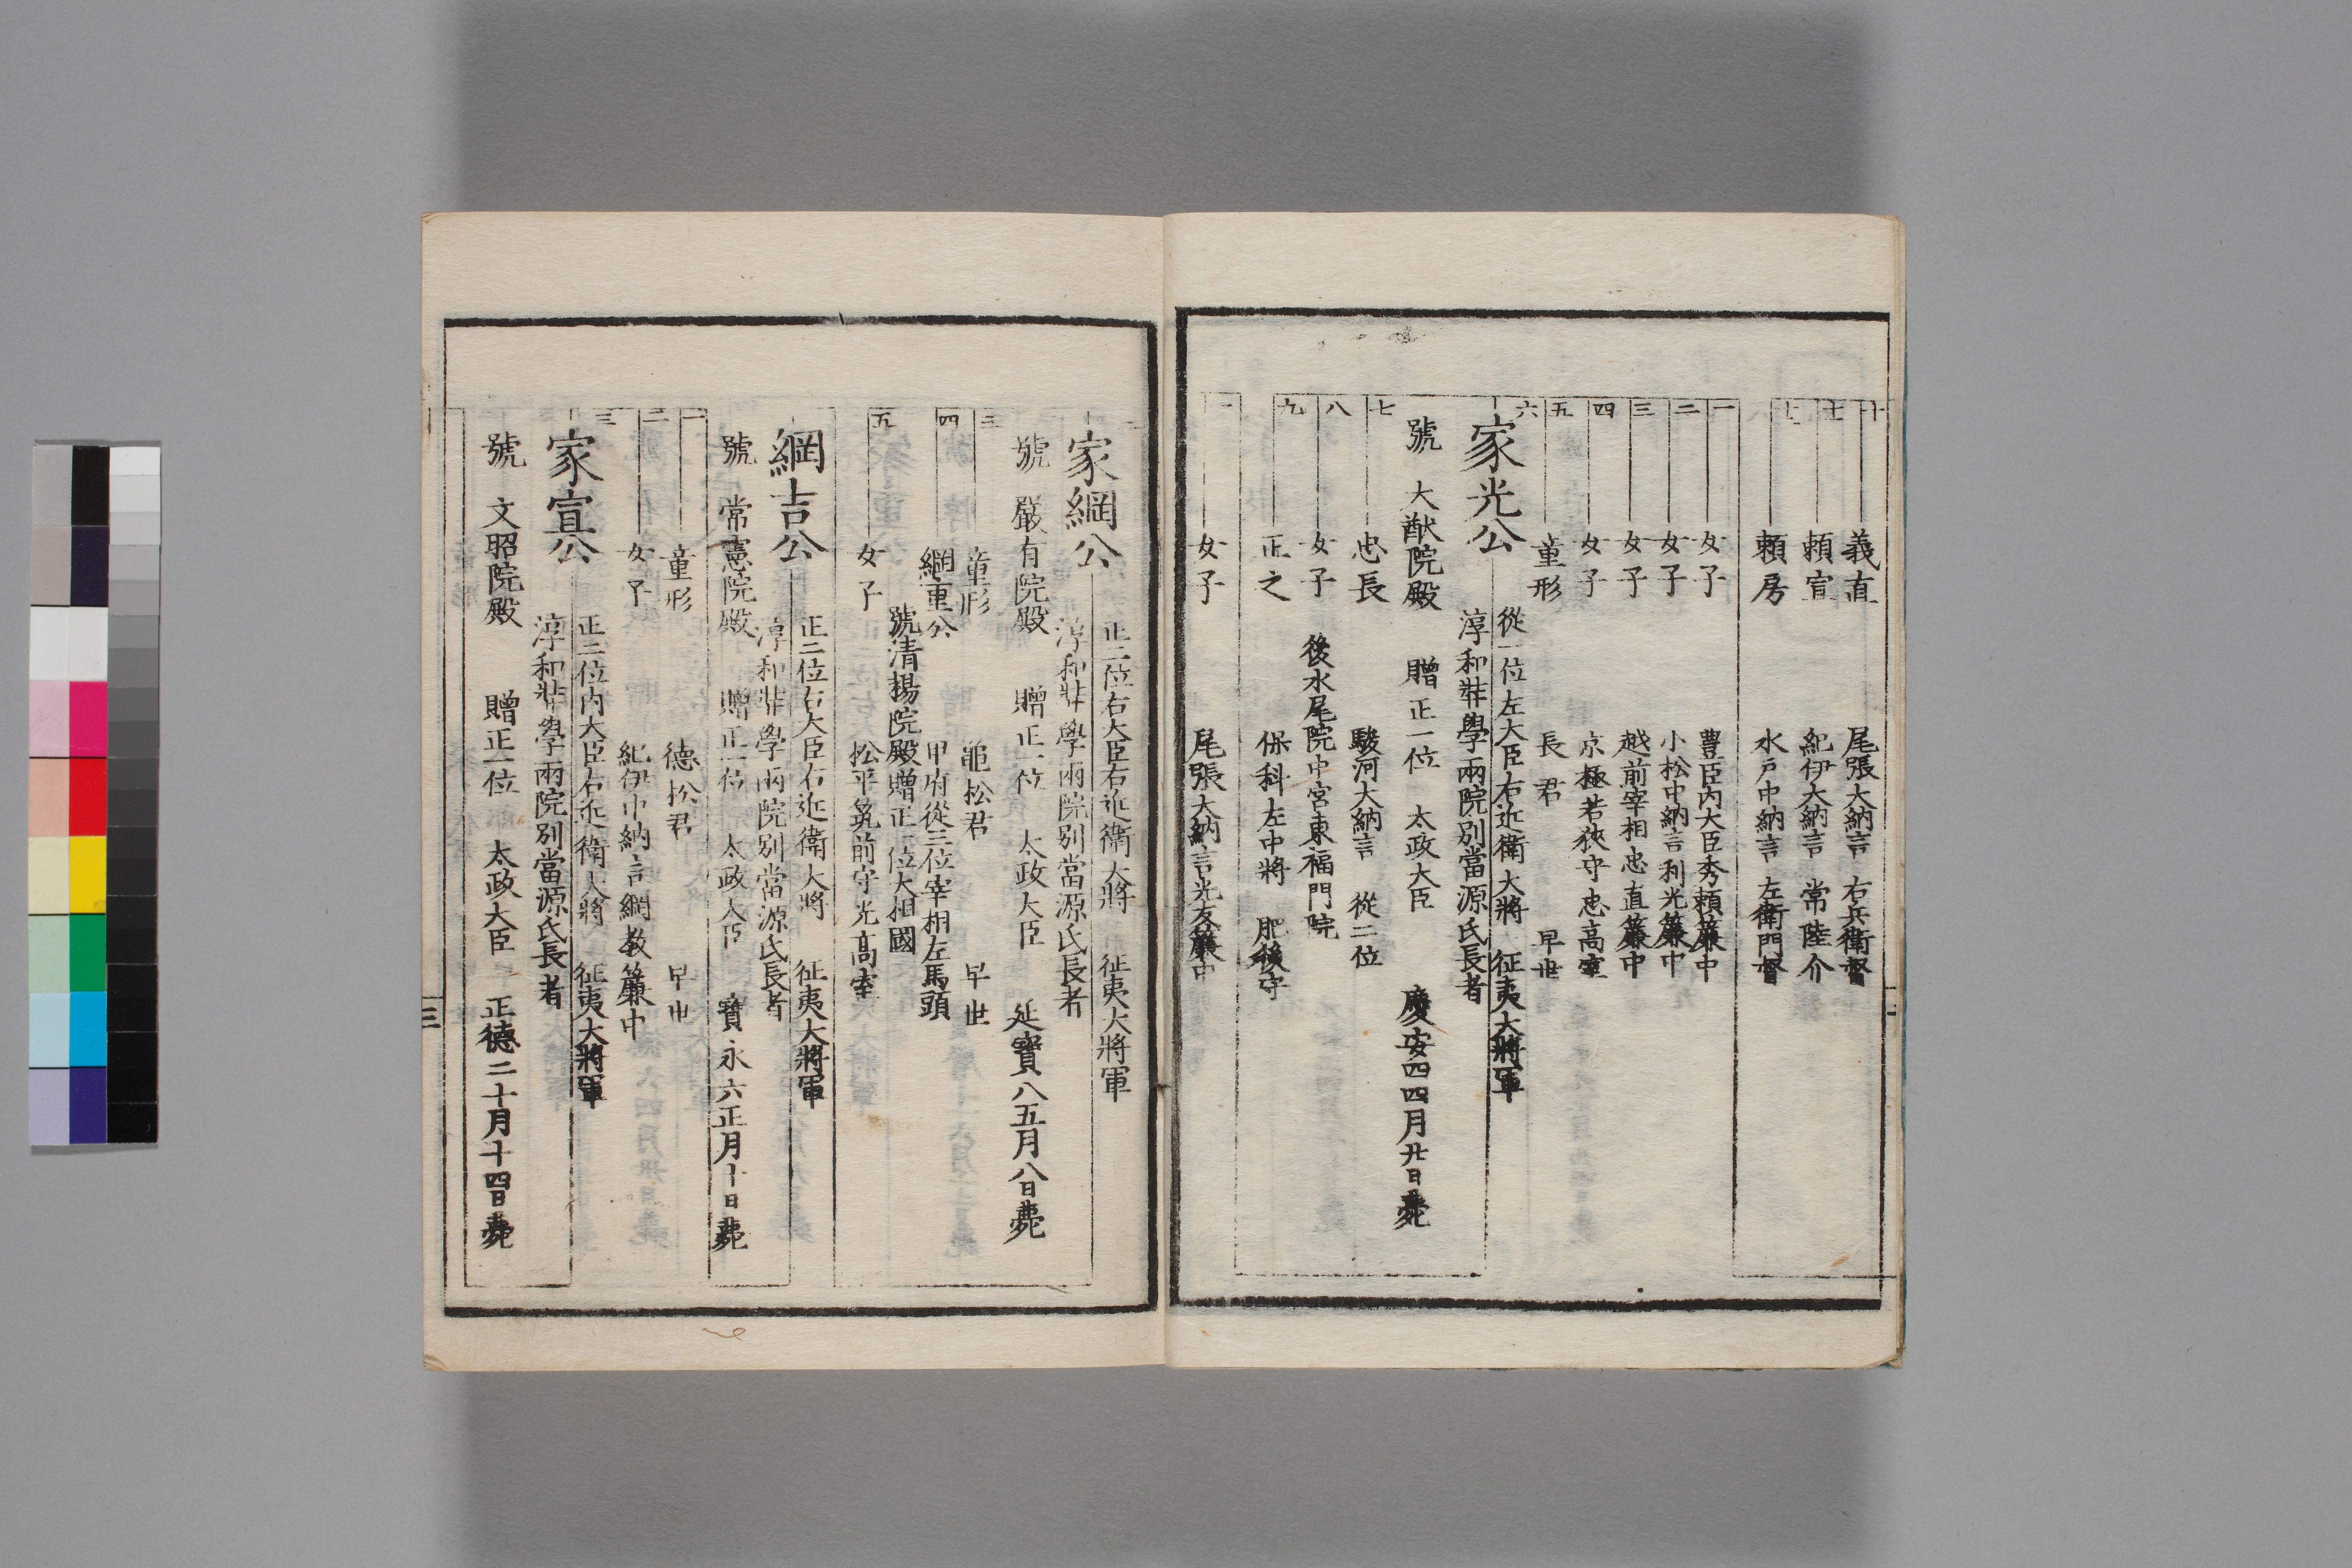 義直 尾張大納言 右兵衛督
頼宣 紀伊大納言 常陸介
頼房 水戸中納言 左衛門督
一 女子 豊臣内大臣秀頼簾中
二 女子 小松中納言利光簾中
三 女子 越前宰相忠直簾中
四 女子 京極若狭守忠高室
五 童形 長君 早世
六 家光公 從一位左大臣右近衛大將 征夷大將軍
淳和奨學兩院別當源氏長者
號 大猷院殿 贈正一位 太政大臣 慶安四四月廿日薨
七 忠長 駿河大納言 從二位
八 女子 後水尾院中宮東福門院
九 正之 保科左中將 肥後守
一 女子 尾張大納言光友簾中
二 家綱公 正二位右大臣右近衛大將 征夷大將軍
淳和奨學兩院別當源氏長者
號 嚴有院殿 贈正一位 太政大臣 延寳八五月八日薨
三 童形 亀松君 早世
四 綱重公 甲府從三位宰相左馬頭
號清揚院殿贈正一位大相國
五 女子 松平筑前守光高室
綱吉公 正二位右大臣右近衛大將 征夷大將軍
淳和奨學兩院別當源氏長者
號 常憲院殿 贈正一位 太政大臣 寳永六正月十日薨
一 童形 德松君 早世
二 女子 紀伊中納言綱教簾中
三 家宣公 正二位内大臣右近衛大將 征夷大將軍
淳和奨學兩院別當源氏長者
號 文昭院殿 贈正一位 太政大臣 正德二十月十四日薨
三